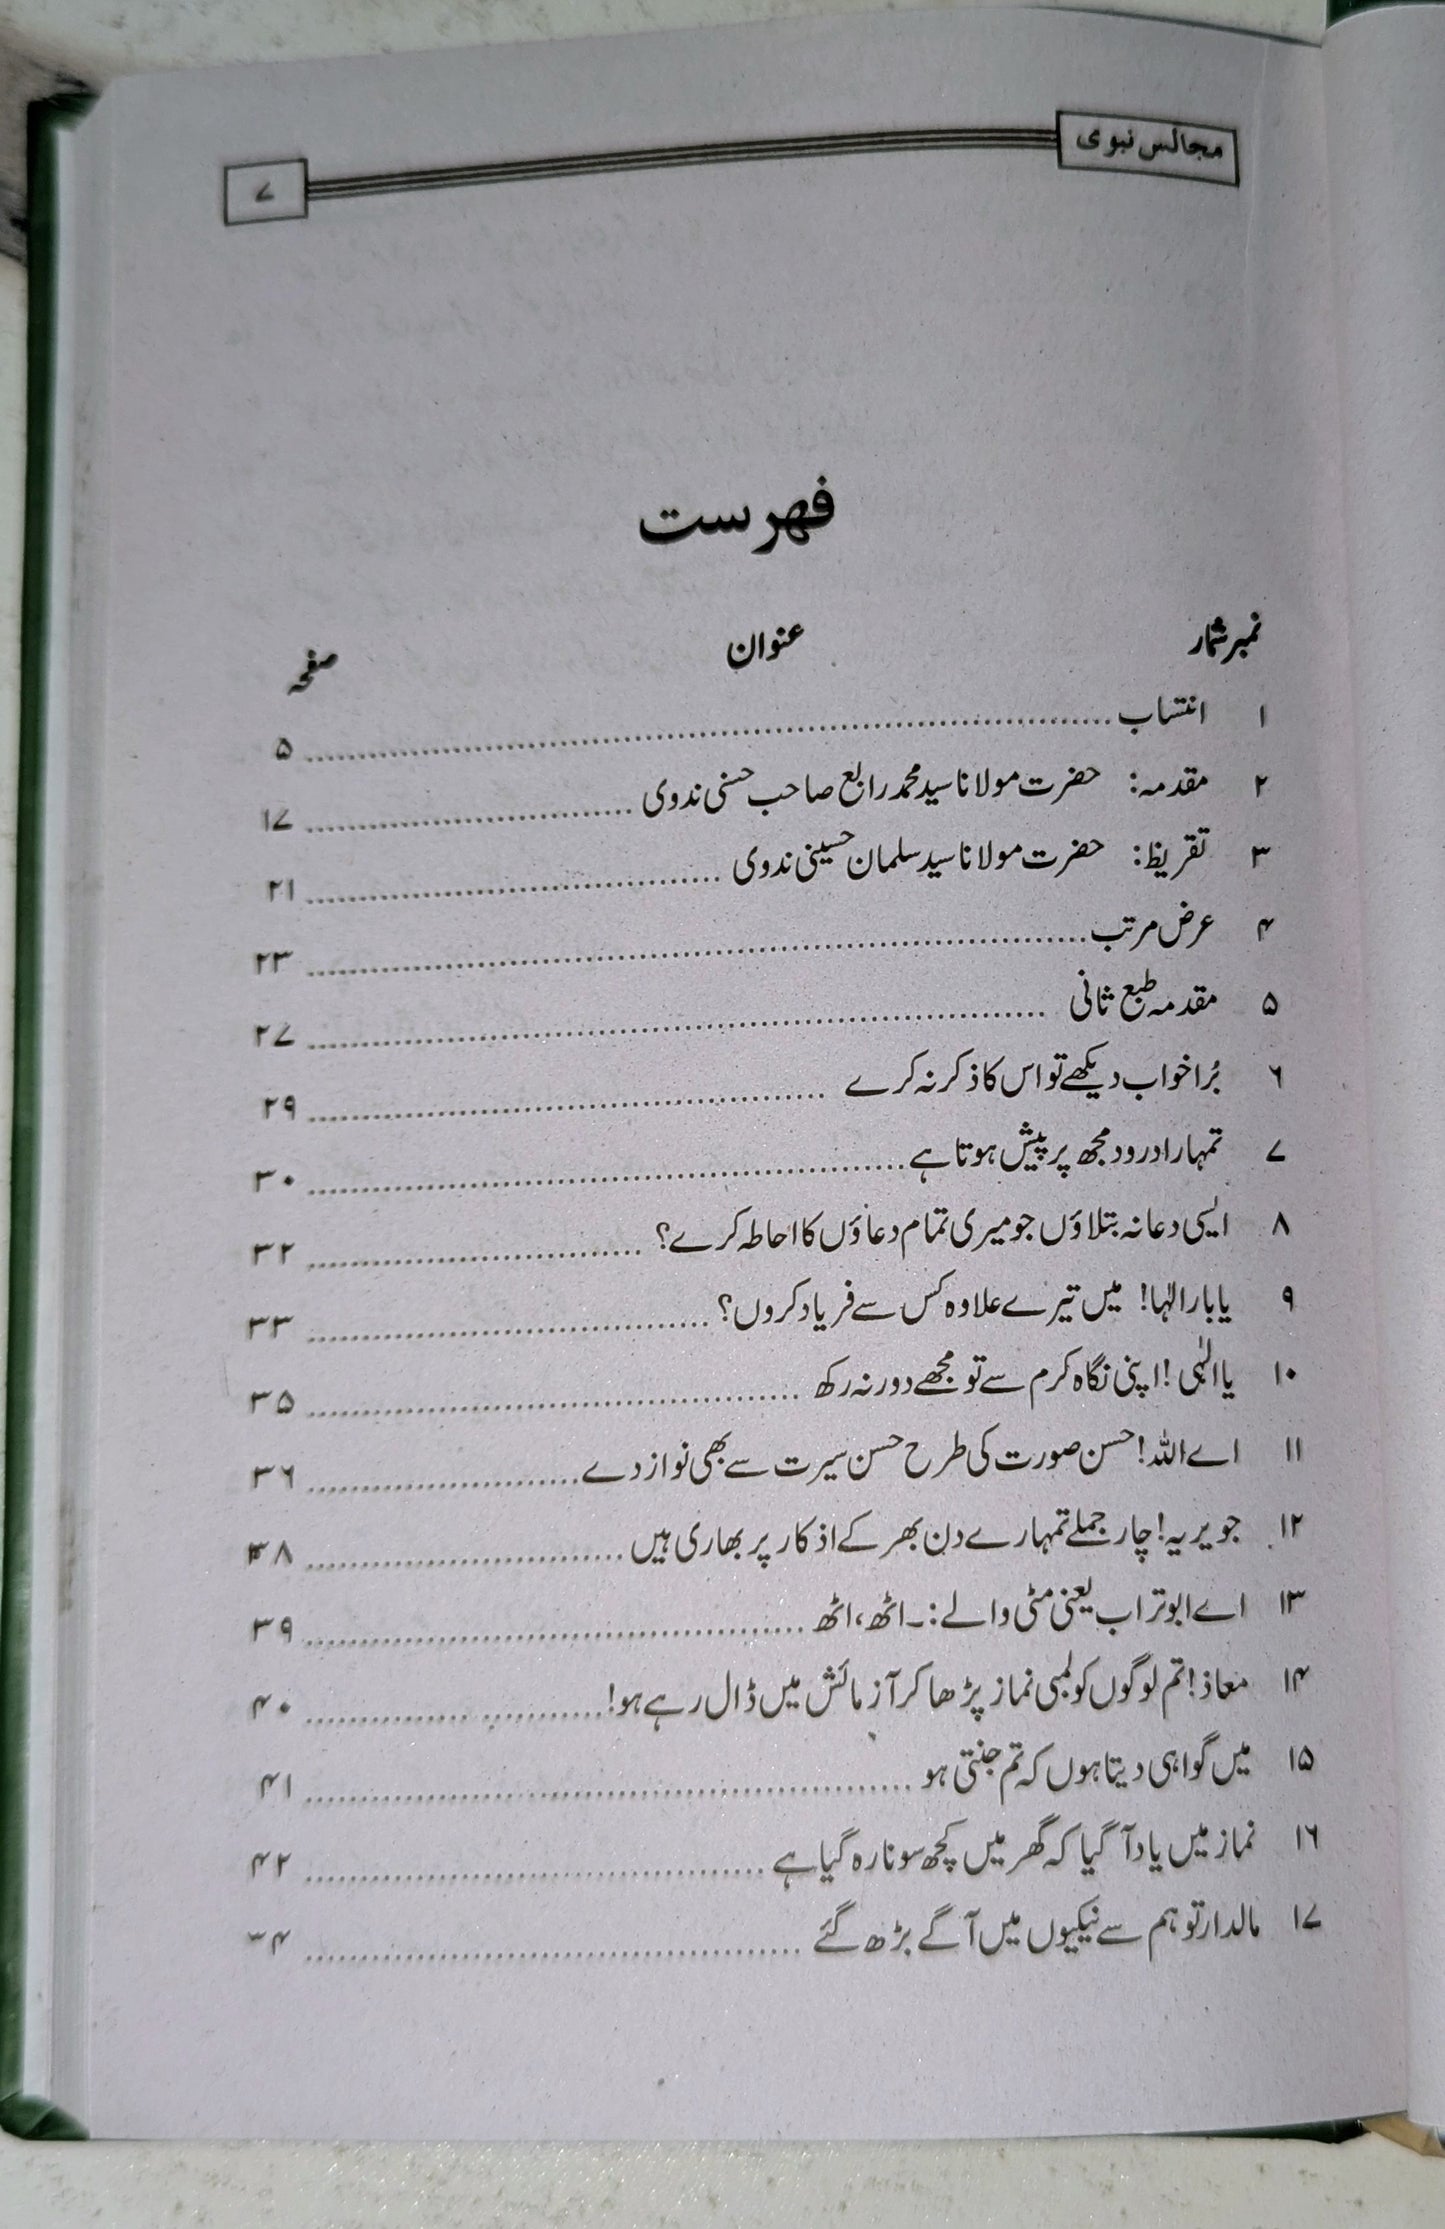 مجالس نبوی ۷
فہرست
نمبر شمار عنوان صفحہ
۱ انتساب ........ ۵
۲ مقدمہ: حضرت مولانا سید محمد رابع صاحب حسنی ندوی ........ ۱۷
۳ تقریظ: حضرت مولانا سید سلمان حسینی ندوی ........ ۲۱
۴ عرض مرتب ........ ۲۳
۵ مقدمہ طبع ثانی ........ ۲۷
۶ بُرا خواب دیکھے تو اس کا ذکر نہ کرے ........ ۲۹
۷ تمہارا درود مجھ پر پیش ہوتا ہے ........ ۳۰
۸ ایسی دعا نہ بتلاؤں جو میری تمام دعاؤں کا احاطہ کرے؟ ........ ۳۲
۹ یا بار الٰہا! میں تیرے علاوہ کس سے فریاد کروں؟ ........ ۳۳
۱۰ یا الٰہی! اپنی نگاہ کرم سے تو مجھے دور نہ رکھ ........ ۳۵
۱۱ اے اللہ! حسن صورت کی طرح حسن سیرت سے بھی نواز دے ........ ۳۶
۱۲ جویریہ! چار جملے تمہارے دن بھر کے اذکار پر بھاری ہیں ........ ۳۸
۱۳ اے ابوتراب یعنی مٹی والے:۔ اٹھ، اٹھ ........ ۳۹
۱۴ معاذ! تم لوگوں کو لمبی نماز پڑھا کر آزمائش میں ڈال رہے ہو! ........ ۴۰
۱۵ میں گواہی دیتا ہوں کہ تم جنتی ہو ........ ۴۱
۱۶ نماز میں یاد آ گیا کہ گھر میں کچھ سونا رہ گیا ہے ........ ۴۲
۱۷ مالدار تو ہم سے نیکیوں میں آگے بڑھ گئے ........